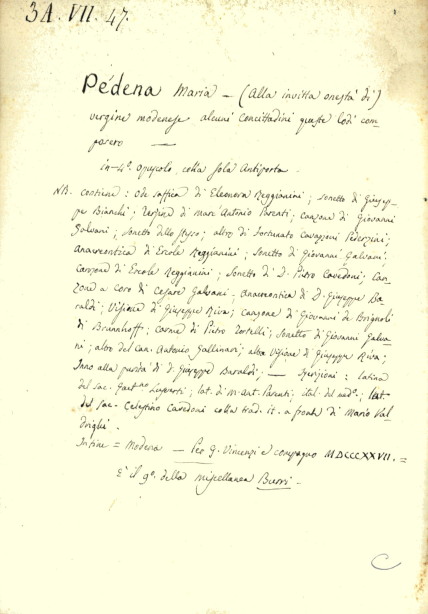 3A. VII. 47.
Pédena Maria — (Alla invitta onestà di)
vergine modenese alcuni concittadini queste lodi com-
posero —
in-4º. opuscolo, colla sola Antiporta.
NB. contiene: Ode saffica di Eleonora Reggianini; Sonetto di Giusep-
pe Bianchi; Terzine di Marc'Antonio Parenti; canzone di Giovanni
Galvani; Sonetto dello stesso; altro di Fortunato Cavazzoni Pederzini;
Anacreontica di Ercole Reggianini; Sonetto di Giovanni Galvani;
Canzone di Ercole Reggianini; Sonetto di D. Pietro Cavedoni; Can-
zone a Coro di Cesare Galvani; Anacreontica di D. Giuseppe Ba-
raldi; Visione di Giuseppe Riva; canzone di Giovanni de Brignoli
di Brünnhoff; Carme di Pietro Zostelli; Sonetto di Giovanni Galva-
ni; altro del Can. Antonio Gallinari; altra Visione di Giuseppe Riva;
Inno alla purità di D. Giuseppe Baraldi; — Iscrizioni: latina
del Sac. Gaetno Lugarti; lat. di M. Ant. Parenti; ital. del medo.; lat.
del Sac. Celestino Cavedoni colla trad. it. a fronte di Mario Val-
drighi.
In fine = Modena — Per G. Vincenzi e compagno MDCCCXXVII. =
È il 9º. della miscellanea Burri —
C